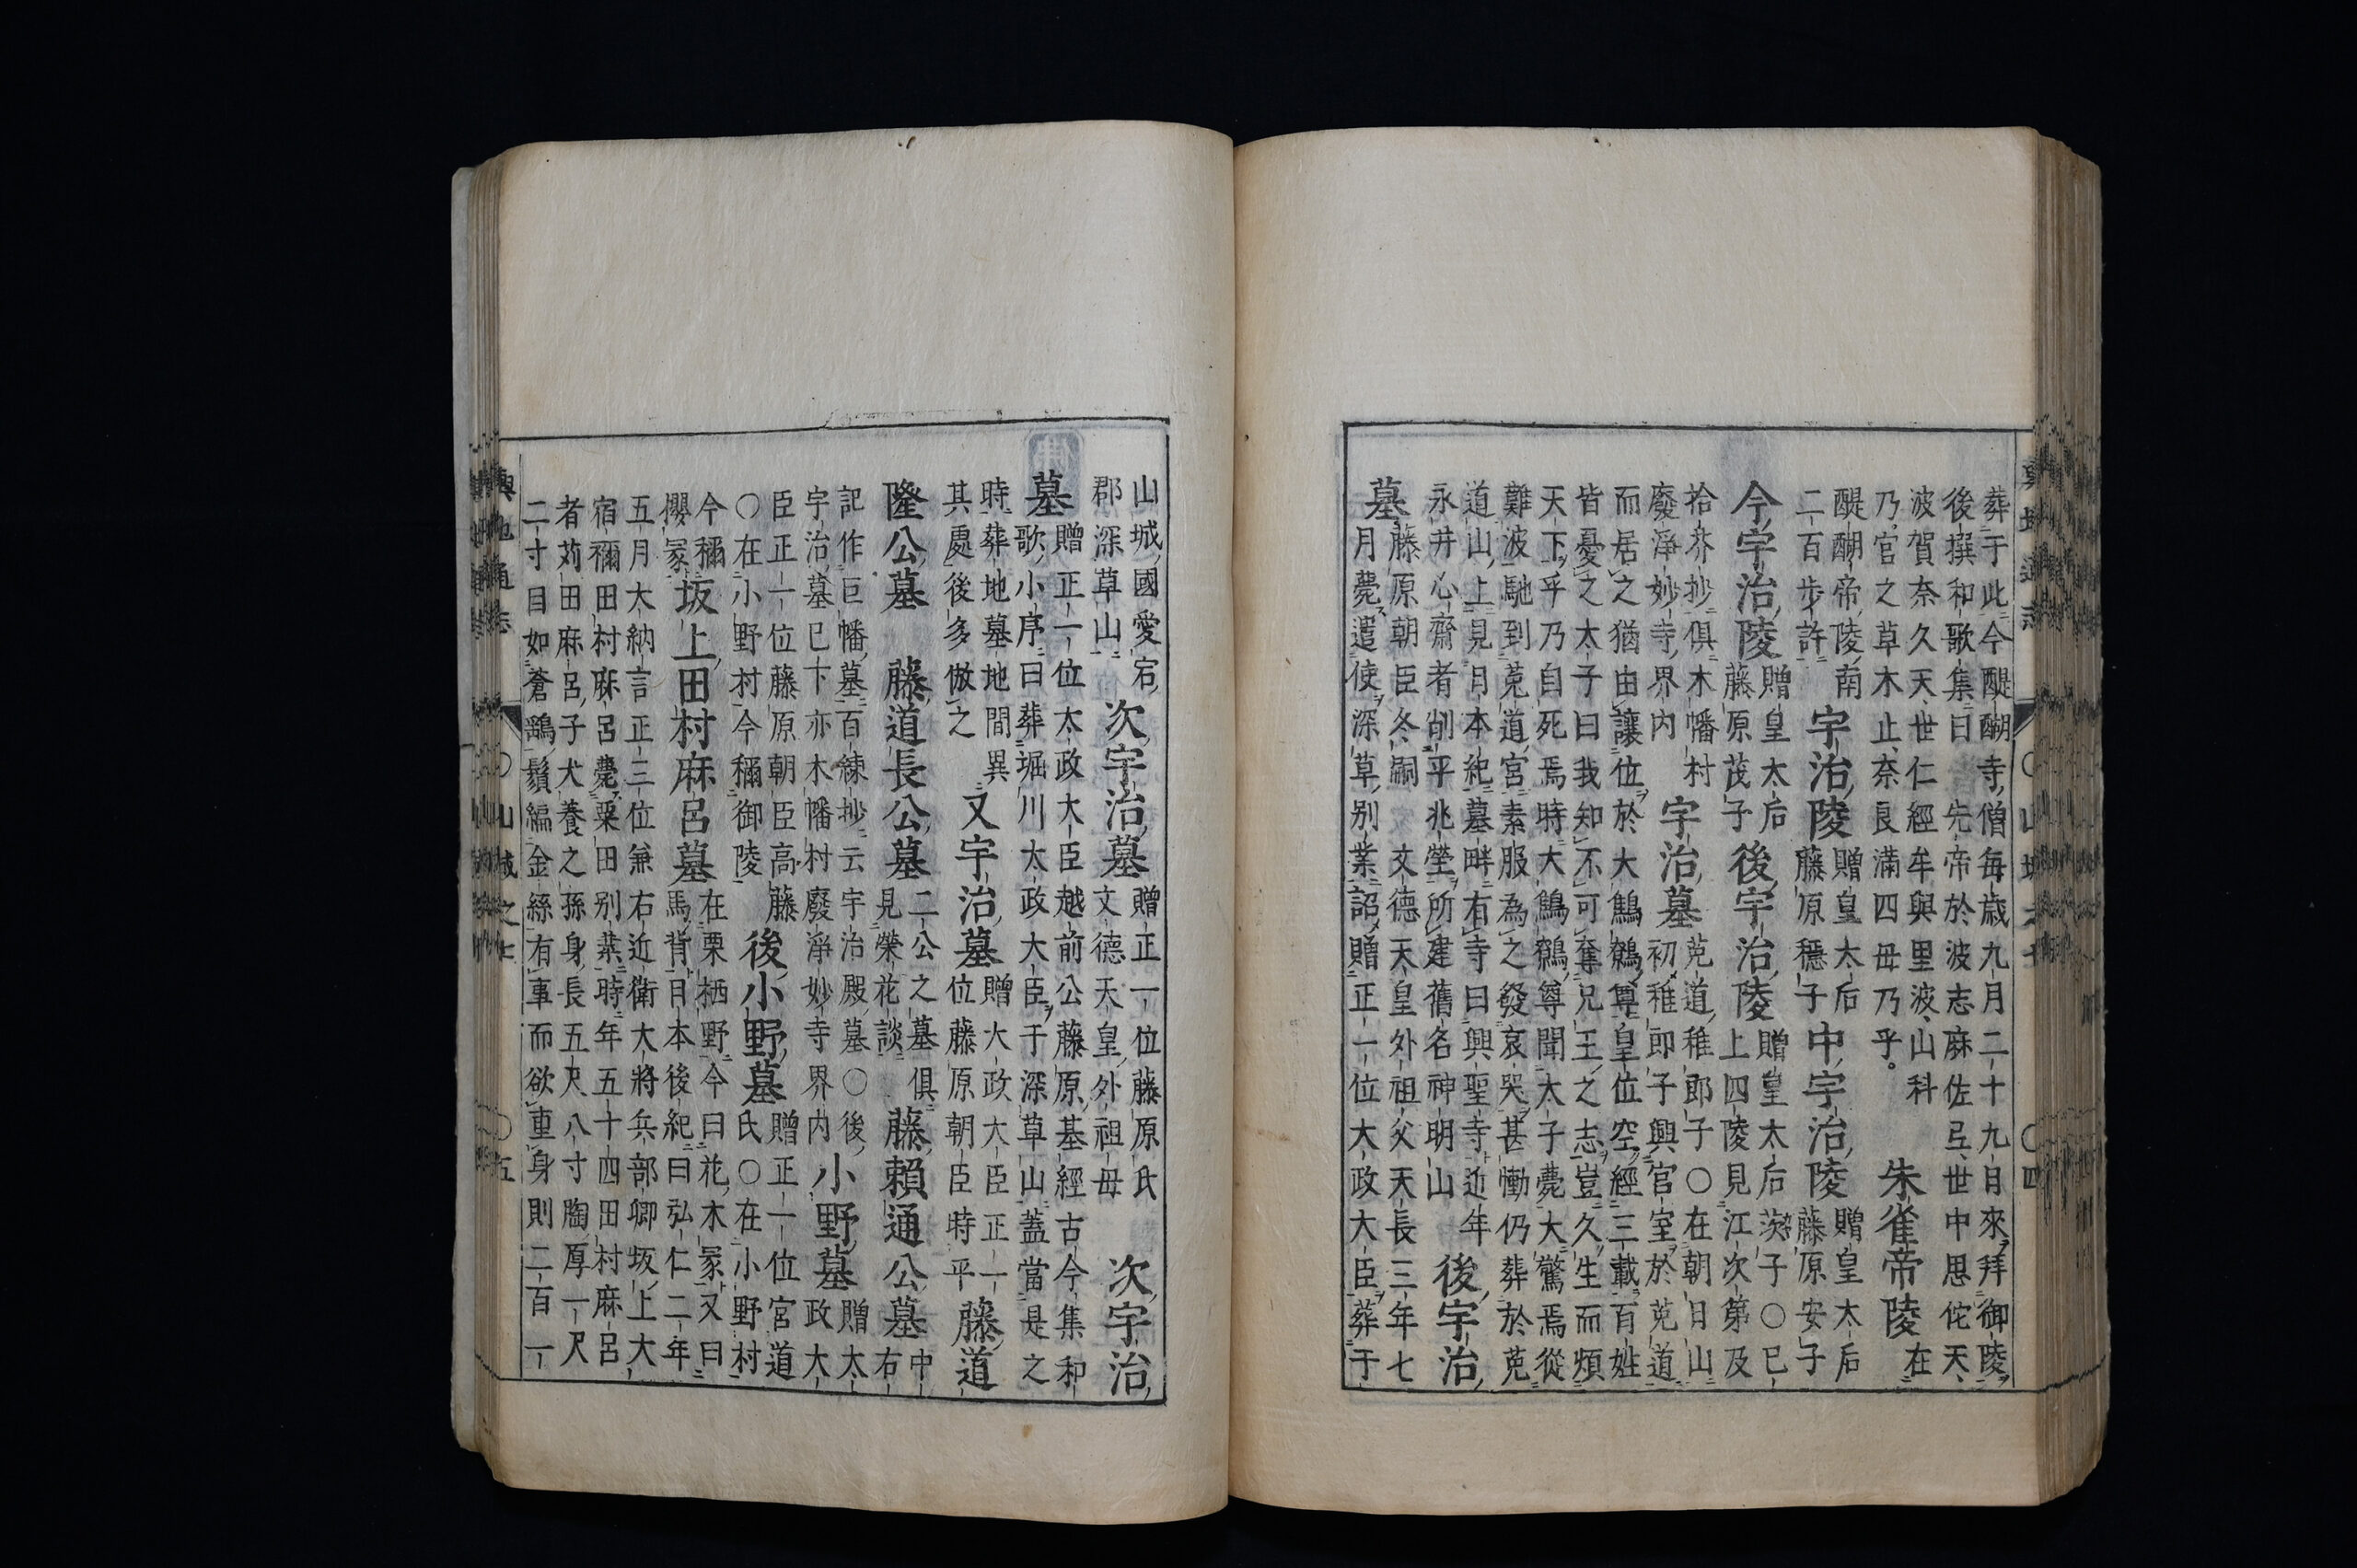 葬于此今醍醐寺僧每歲九月二十九日來拜御陵
後撰和歌集曰　先帝於波志麻佐𢎞世中思侘天
波賀奈久天世仁經牟與里波山科
乃官之草木止奈良滿四毋乃乎。　朱雀帝陵　在
醍醐帝陵南
二百步許　宇治陵　贈皇太后
藤原穩子　中宇治陵　贈皇太后
藤原安子
今宇治陵　贈皇太后
藤原茂子　後宇治陵　贈皇太后茨子〇已
上四陵見江次第及
拾芥抄俱木幡村
廢淨妙寺界内　宇治墓　莵道稚郎子〇在朝日山
初稚郎子興官室於莵道
而居之猶由讓位於大鷦鷯尊皇位空經三載百姓
皆憂之太子曰我知不可奪兄王之志豈久生而煩
天下乎乃自死焉時大鷦鷯尊聞太子薨大驚焉從
難波馳到莵道宮素服為之發哀哭甚慟仍葬於莵
道山上見日本紀墓畔有寺曰興聖寺近年
永井心齋者削平兆塋所建舊名神明山　後宇治
墓　藤原朝臣冬嗣　文德天皇外祖父天長三年七
月薨遣使深草別業詔贈正一位太政大臣葬于
山城國愛宕
郡深草山　次宇治墓　贈正一位藤原氏
文德天皇外祖母　次宇治
墓　贈正一位太政大臣越前公藤原基經古今集和
歌小序曰葬堀川太政大臣于深草山蓋當是之
時葬地墓地間異
其處後多倣之　又宇治墓　贈大政大臣正一
位藤原朝臣時平　藤道
隆公墓　藤道長公墓　二公之墓俱
見榮花談　藤賴通公墓　中
右
記作巨幡墓百練抄云宇治殿墓〇後
宇治墓已下亦木幡村廢淨妙寺界内　小野墓　贈太
政大
臣正一位藤原朝臣高藤
〇在小野村今稱御陵　後小野墓　贈正一位宮道
氏〇在小野村
今稱
櫻冢　坂上田村麻呂墓　在栗栖野今曰花木冢又曰
馬背日本後紀曰弘仁二年
五月大納言正三位兼右近衛大將兵部卿坂上大
宿禰田村麻呂薨粟田别業時年五十四田村麻呂
者苅田麻呂子犬養之孫身長五尺八寸胸厚一尺
二寸目如蒼鷂鬚編金絲有事而欲重身則二百一
山城之七
〇五
〇四